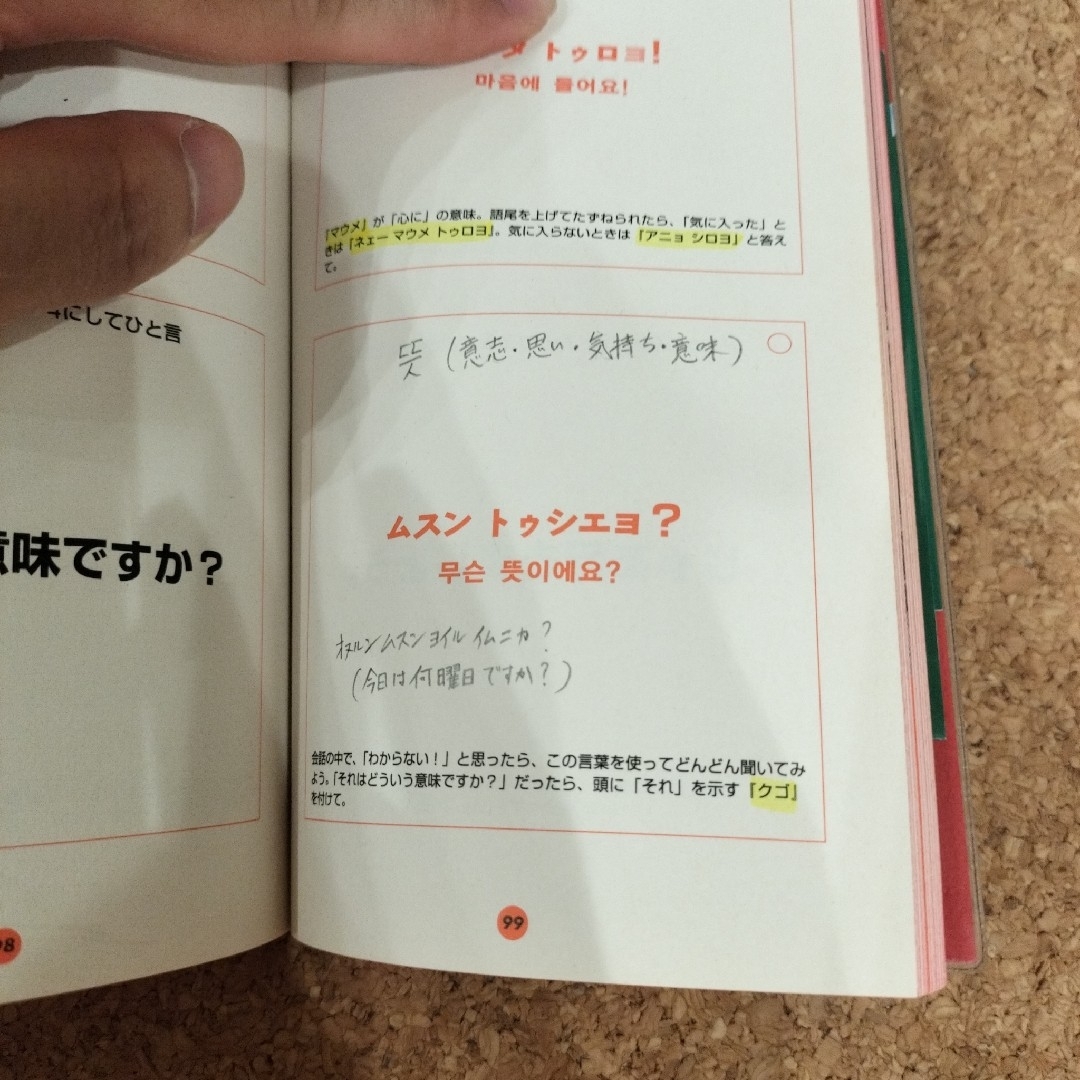 にしてひと言
味ですか？
98
トゥロヨ！
마음에 들어요!
『マウメ』が「心に」の意味。語尾を上げてたずねられたら、「気に入った」と
きは『ネェー マウメ トゥロヨ』。気に入らないときは『アニョ シロヨ』と答え
て。
뜻 (意志・思い・気持ち・意味)
ムスン トゥシエヨ？
무슨 뜻이에요?
オヌルン ムスン ヨイル イムニカ？
(今日は何曜日ですか？)
会話の中で、「わからない！」と思ったら、この言葉を使ってどんどん聞いてみ
よう。「それはどういう意味ですか？」だったら、頭に「それ」を示す『クゴ』
を付けて。
99